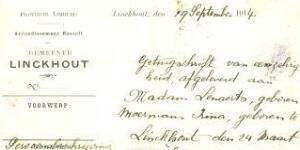 PROVINCIE LIMBURG
Arrondissement Hasselt
GEMEENTE
LINCKHOUT
N.
VOORWERP:
Persoonsbeschrijving
Linckhout, den 19 September 1914.
Getuigschrift van
heid, afgeleverd aan
Madam Lenaerts, geboren
Moermans Rina, geboren te
Linckhout den 24 Maart